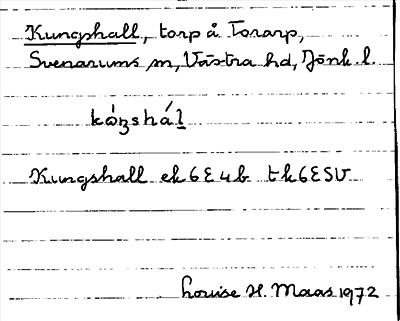 Kungshall, torp å Torarp,
Svenarums sn, Västra hd, Jönk. l.
kóŋshál
Kungshall ek 6E4b tk 6ESV
Louise H. Maas 1972